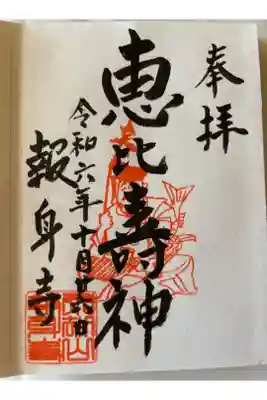 奉拝
恵比寿神
令和六年十月廿六日
報身寺